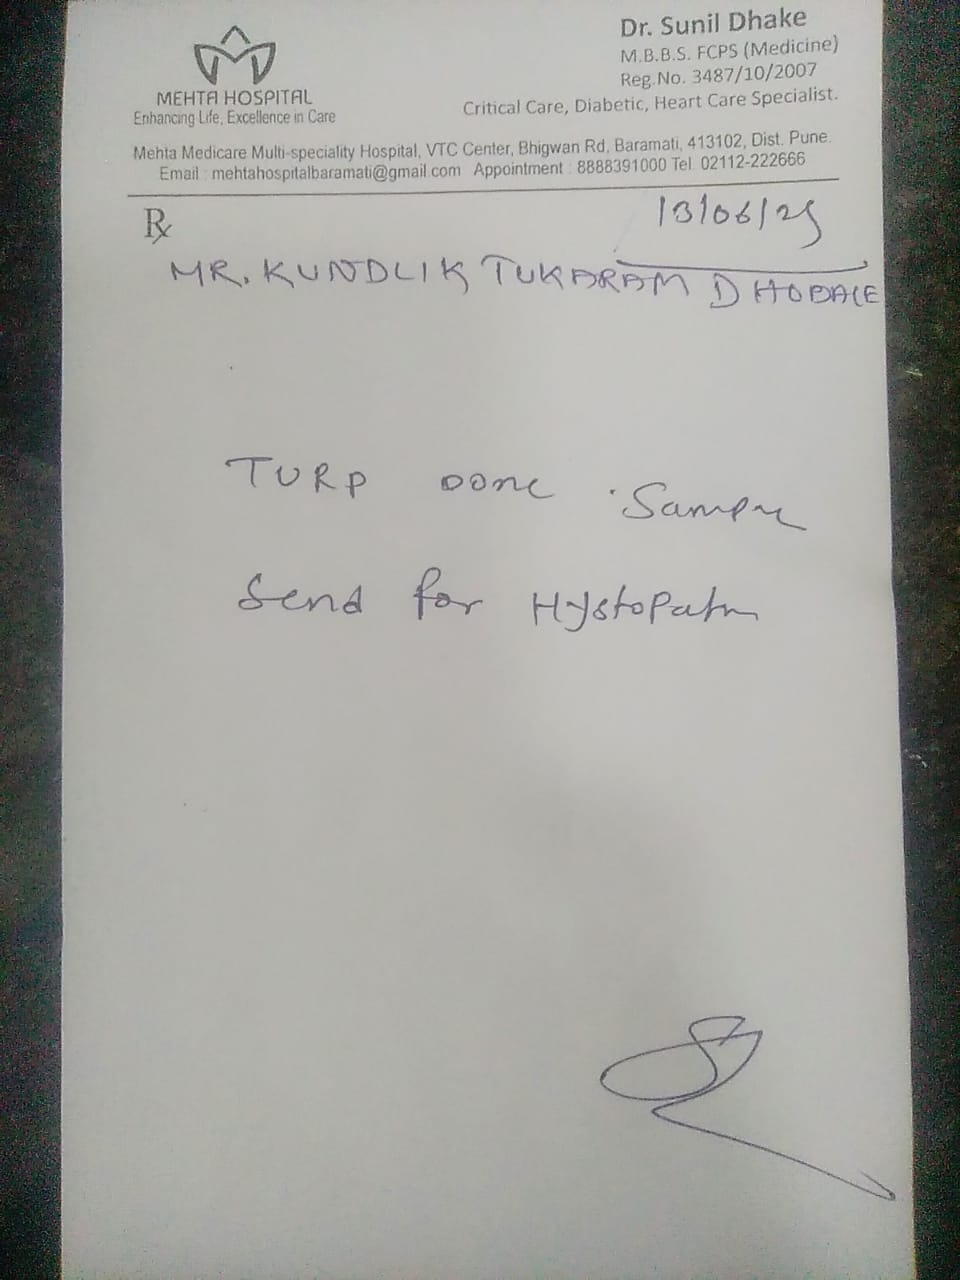 MEHTA HOSPITAL
Enhancing Life, Excellence in Care
Dr. Sunil Dhake
M.B.B.S. FCPS (Medicine)
Reg.No. 3487/10/2007
Critical Care, Diabetic, Heart Care Specialist.
Mehta Medicare Multi-speciality Hospital, VTC Center, Bhigwan Rd, Baramati, 413102, Dist. Pune.
Email : mehtahospitalbaramati@gmail.com Appointment : 8888391000 Tel. 02112-222666
℞
13/06/25
MR. KUNDLIK TUKARAM DHOBALE
TURP Done Sample
Send for Hystopath